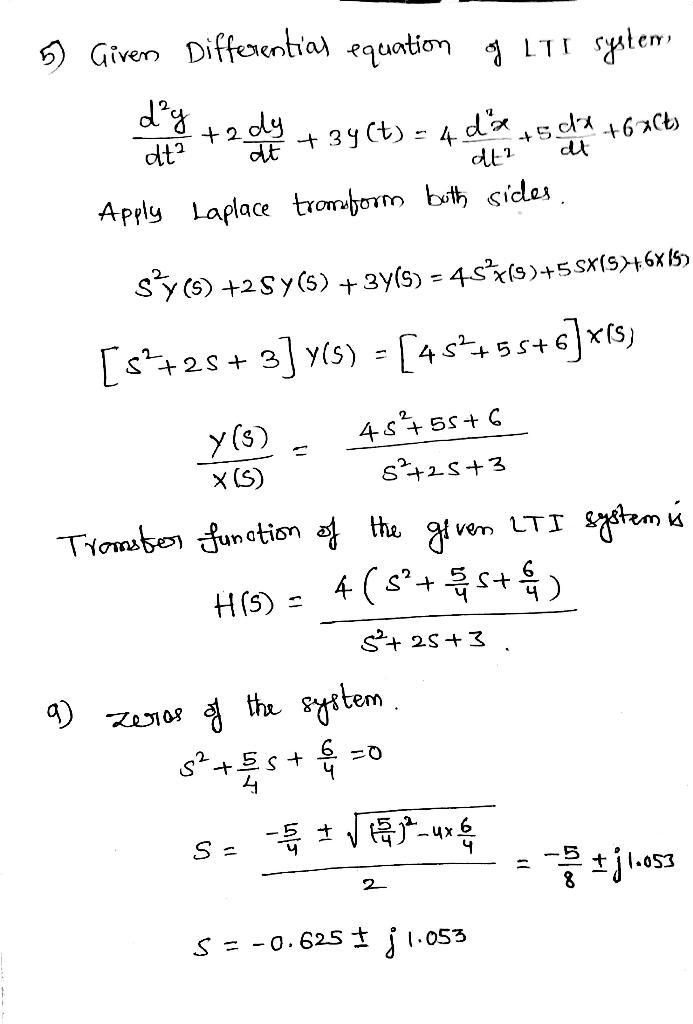 5) Given Differential equation of LTI system,
d²y/dt² + 2 dy/dt + 3y(t) = 4 d²x/dt² + 5 dx/dt + 6x(t)
Apply Laplace transform both sides.
s²y(s) + 2sy(s) + 3y(s) = 4s²x(s) + 5sx(s) + 6x(s)
[s² + 2s + 3] y(s) = [4s² + 5s + 6] x(s)
y(s)/x(s) = (4s² + 5s + 6)/(s² + 2s + 3)
Transfer function of the given LTI system is
H(s) = 4(s² + 5/4 s + 6/4)/(s² + 2s + 3).
a) zeros of the system.
s² + 5/4 s + 6/4 = 0
s = (-5/4 ± √((5/4)² - 4x6/4))/2 = -5/8 ± j1.053
s = -0.625 ± j 1.053